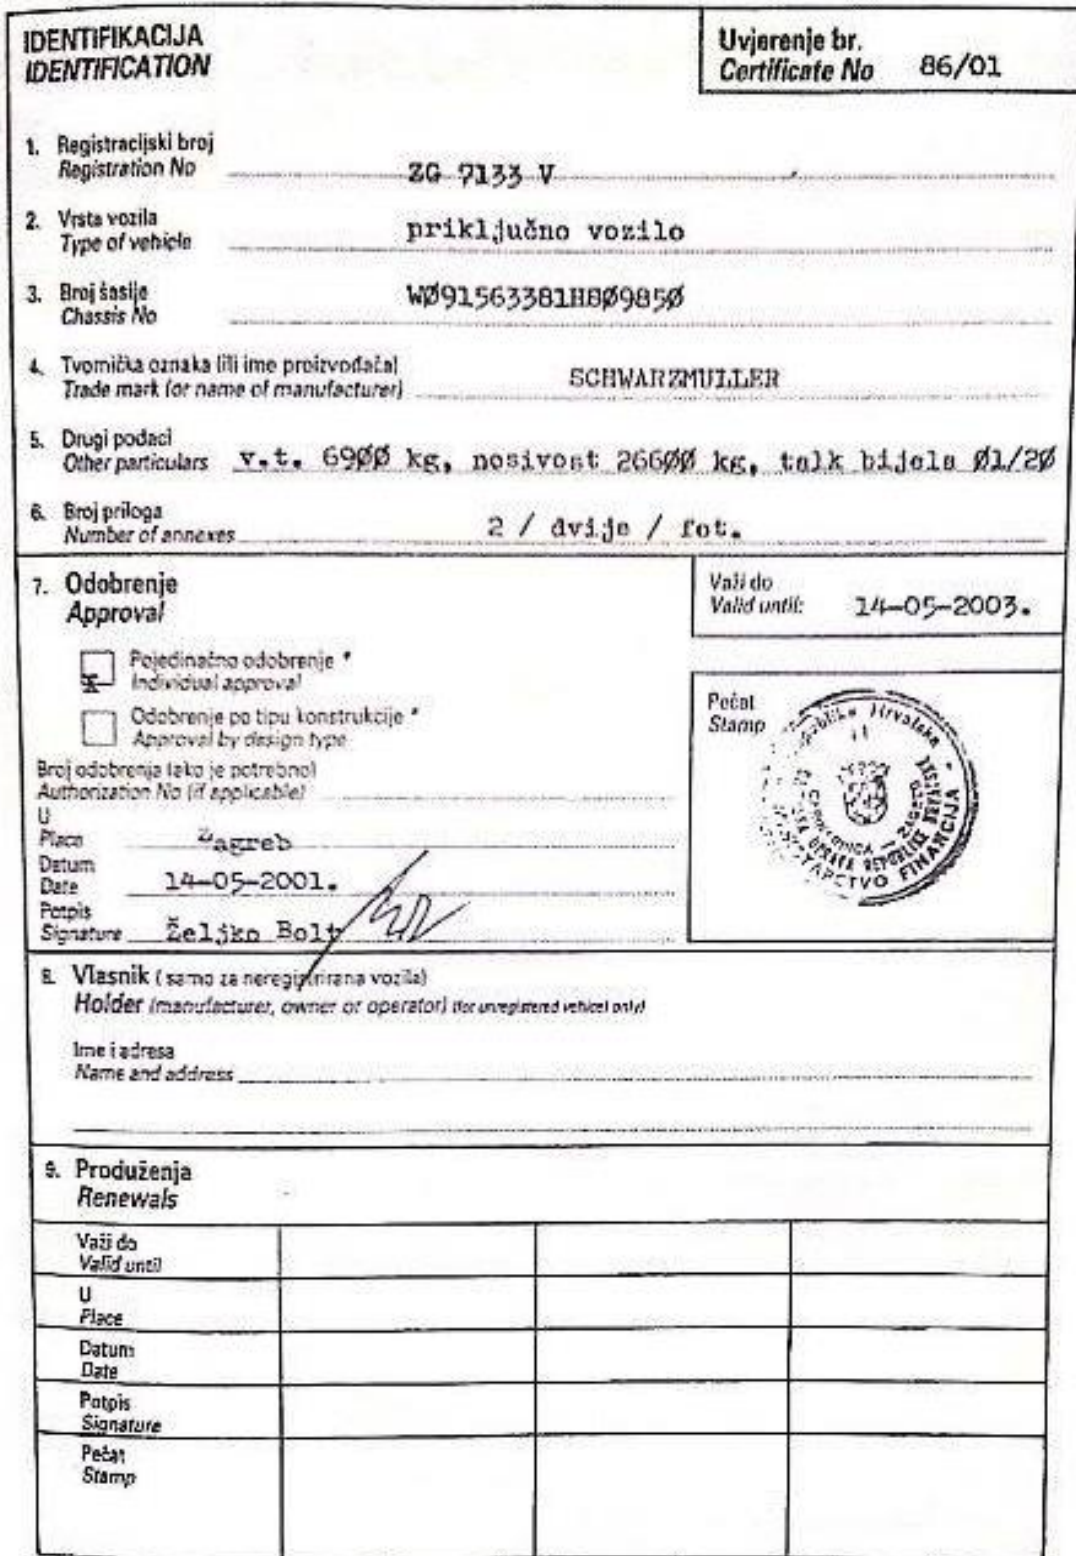 IDENTIFIKACIJA
IDENTIFICATION
Uvjerenje br.
Certificate No 86/01
1. Registracijski broj
Registration No ZG 7133 V
2. Vrsta vozila
Type of vehicle priključno vozilo
3. Broj šasije
Chassis No WØ91563381H8Ø985Ø
4. Tvornička oznaka (ili ime proizvođača)
Trade mark (or name of manufacturer) SCHWARZMULLER
5. Drugi podaci
Other particulars v.t. 69ØØ kg, nosivost 266ØØ kg, talk bijela Ø1/2Ø
6. Broj priloga
Number of annexes 2 / dvije / fot.
7. Odobrenje
Approval
Važi do
Valid until: 14-05-2003.
x Pojedinačno odobrenje *
Individual approval
Odobrenje po tipu konstrukcije *
Approval by design type
Broj odobrenja (ako je potrebno)
Authorization No (if applicable)
U
Place Zagreb
Datum
Date 14-05-2001.
Potpis
Signature Željko Bolt
Pečat
Stamp
Republika Hrvatska
MINISTARSTVO FINANCIJA
CARINARNICA - ZAGREB
8. Vlasnik (samo za neregistrirana vozila)
Holder (manufacturer, owner or operator) (for unregistered vehicel only)
Ime i adresa
Name and address
9. Produženja
Renewals
Važi do
Valid until
U
Place
Datum
Date
Potpis
Signature
Pečat
Stamp